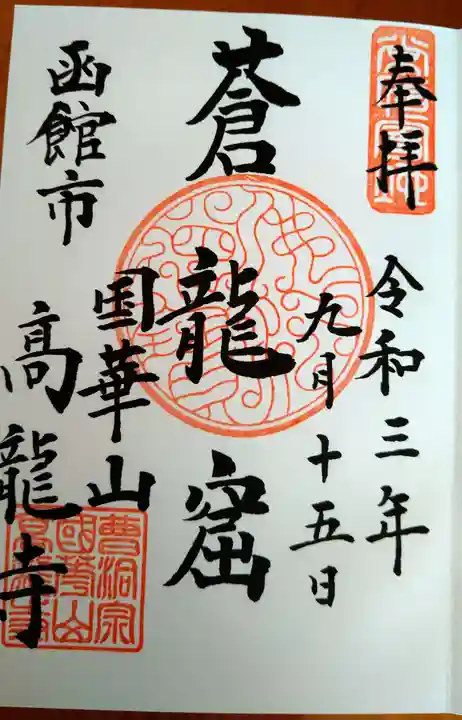 奉拝
令和三年
九月十五日
蒼龍窟
国華山
函館市
高龍寺
曹洞宗
國華山
高龍寺